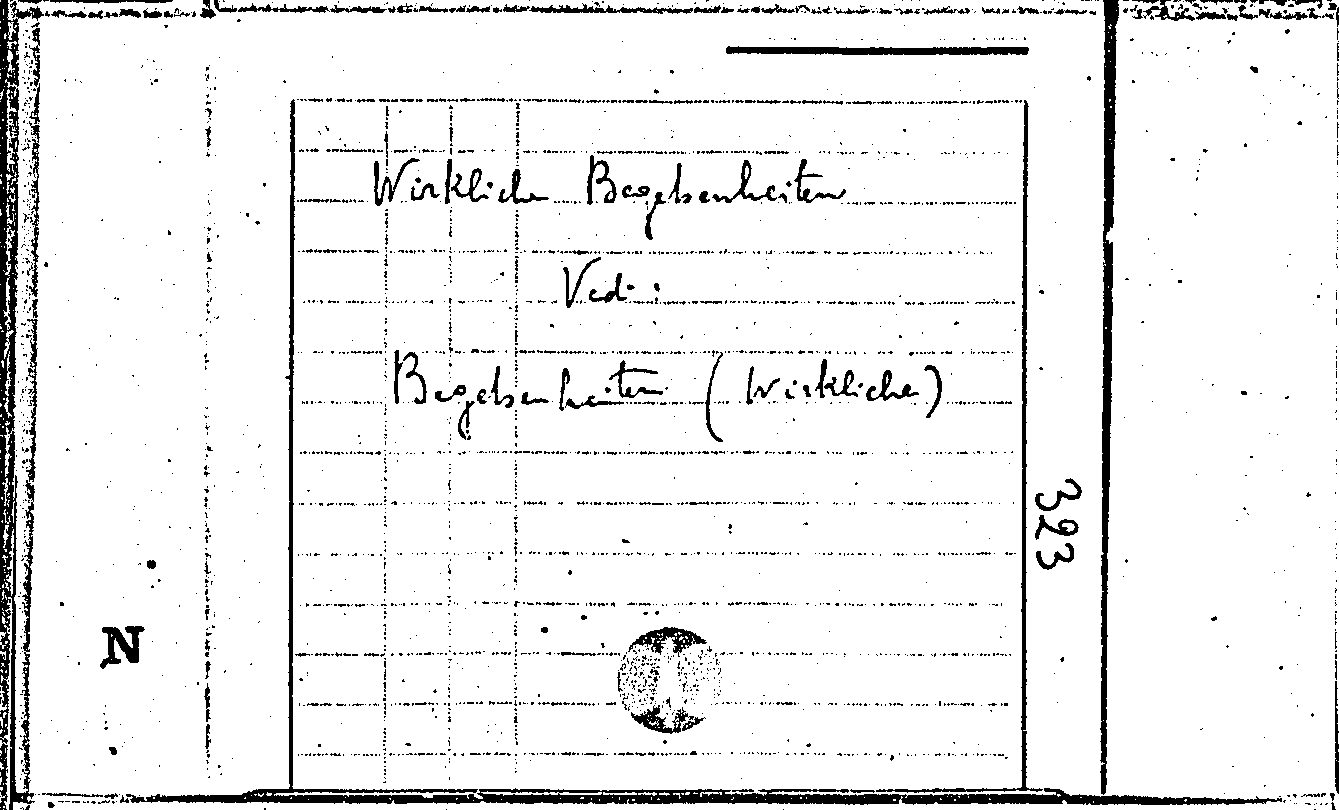 Wirkliche Begebenheiten
Vedi:
Begebenheiten (Wirkliche)
323
N